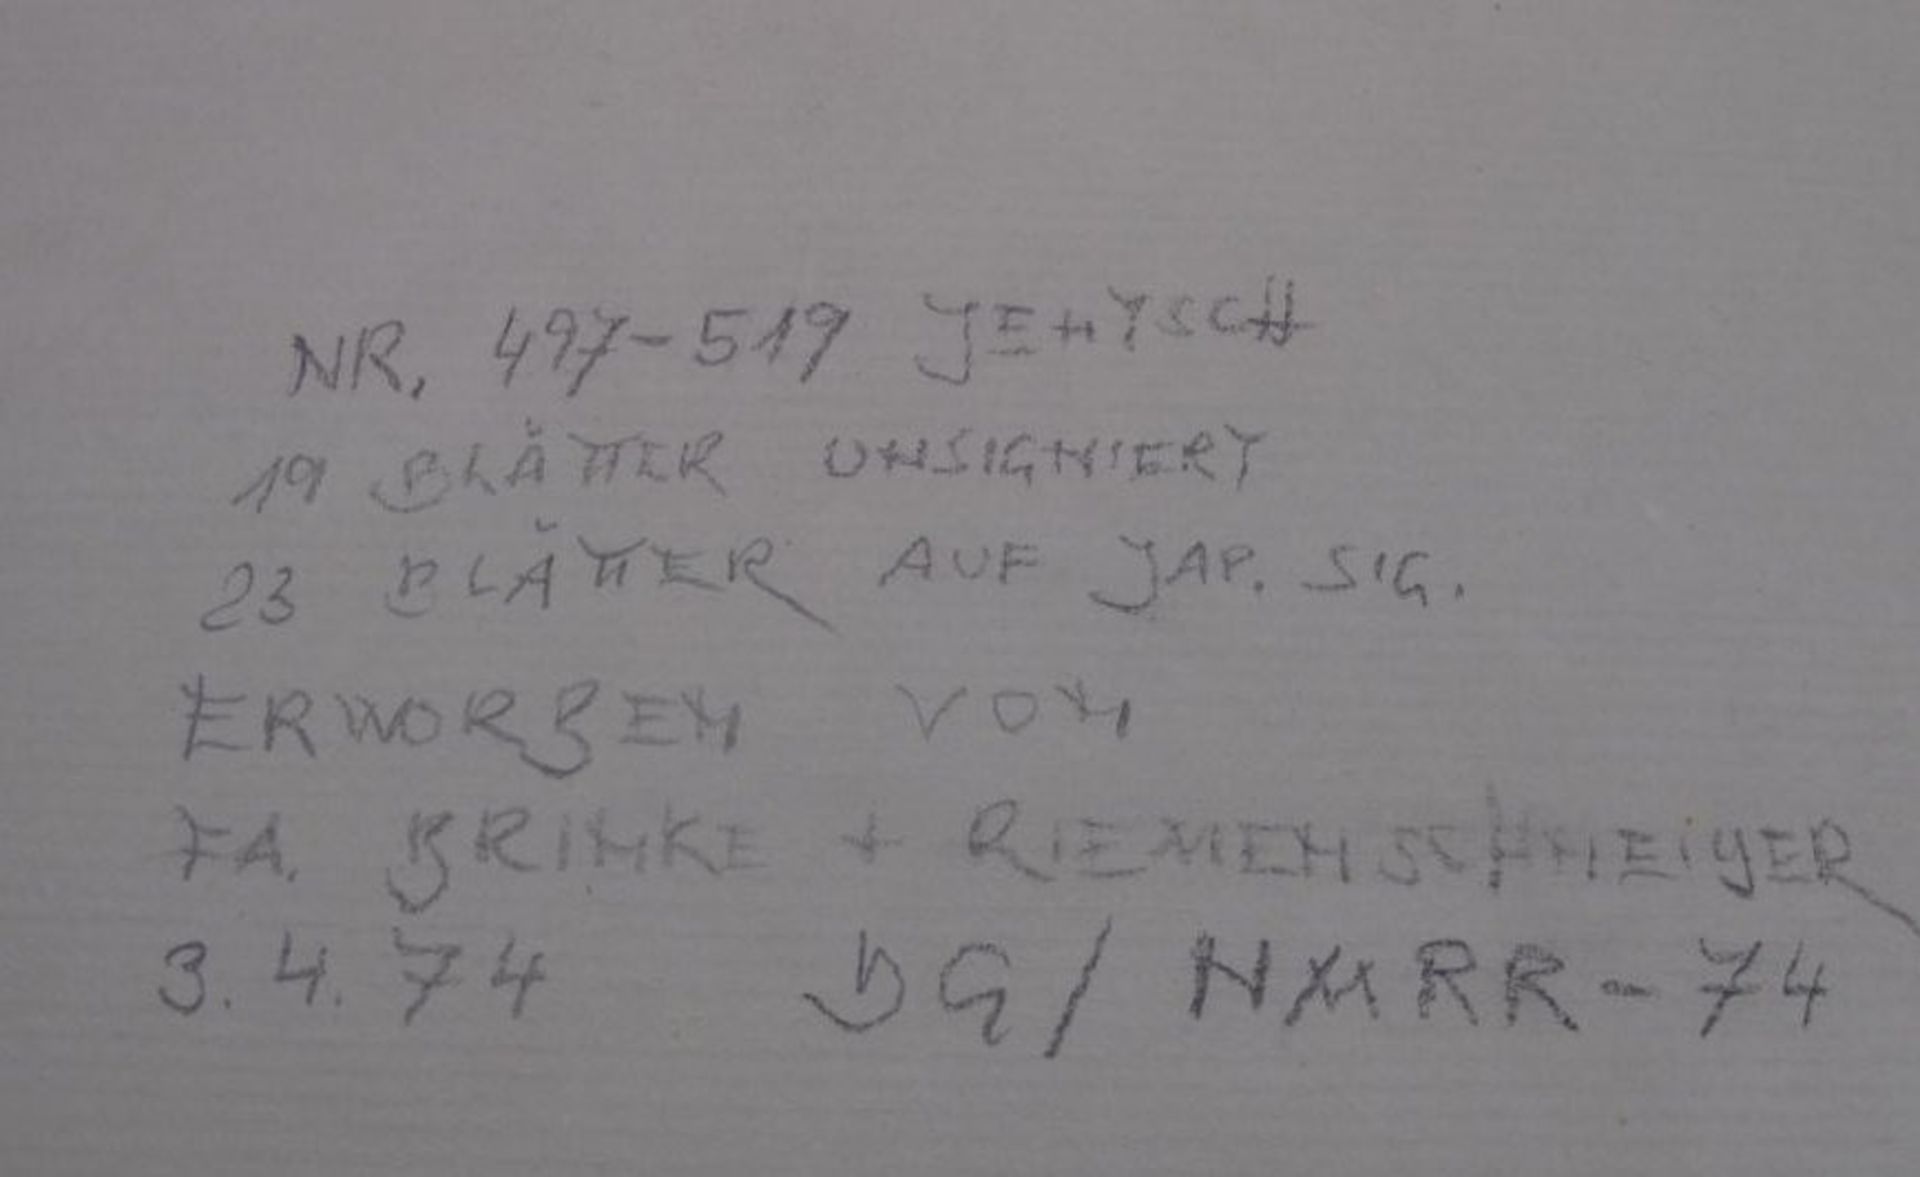 NR. 497-519 JENTSCH
19 BLÄTTER UNSIGNIERT
23 BLÄTTER AUF JAP. SIG.
ERWORBEN VON
FA. BRINKE + RIEMENSCHNEIDER
3.4.74 DG/ NMRR-74